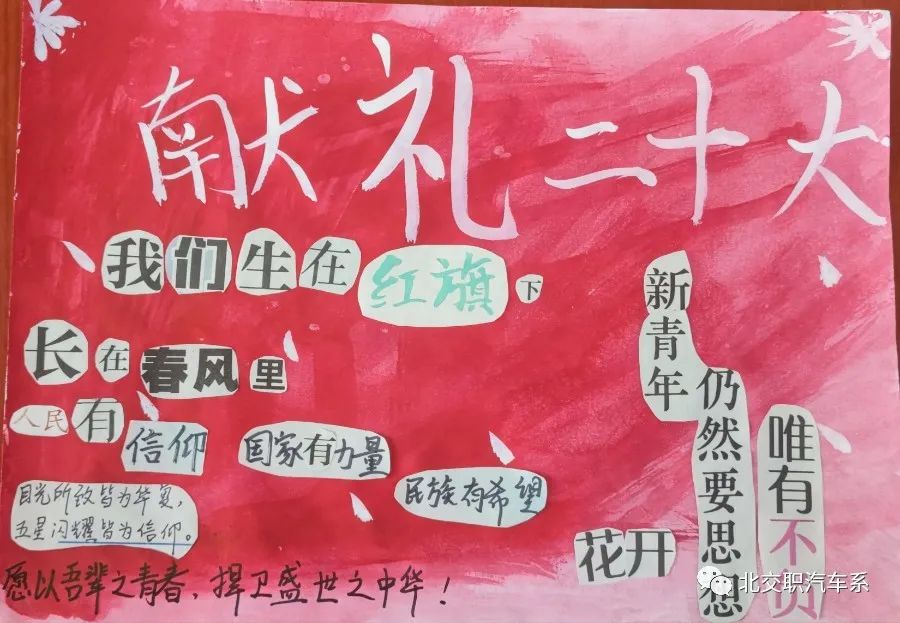 献礼二十大
我们生在红旗下
长在春风里
人民有信仰
国家有力量
民族有希望
目光所致皆为华夏,
五星闪耀皆为信仰。
愿以吾辈之青春,捍卫盛世之中华!
新青年
仍然要思想
花开
唯有不负
北交职汽车系